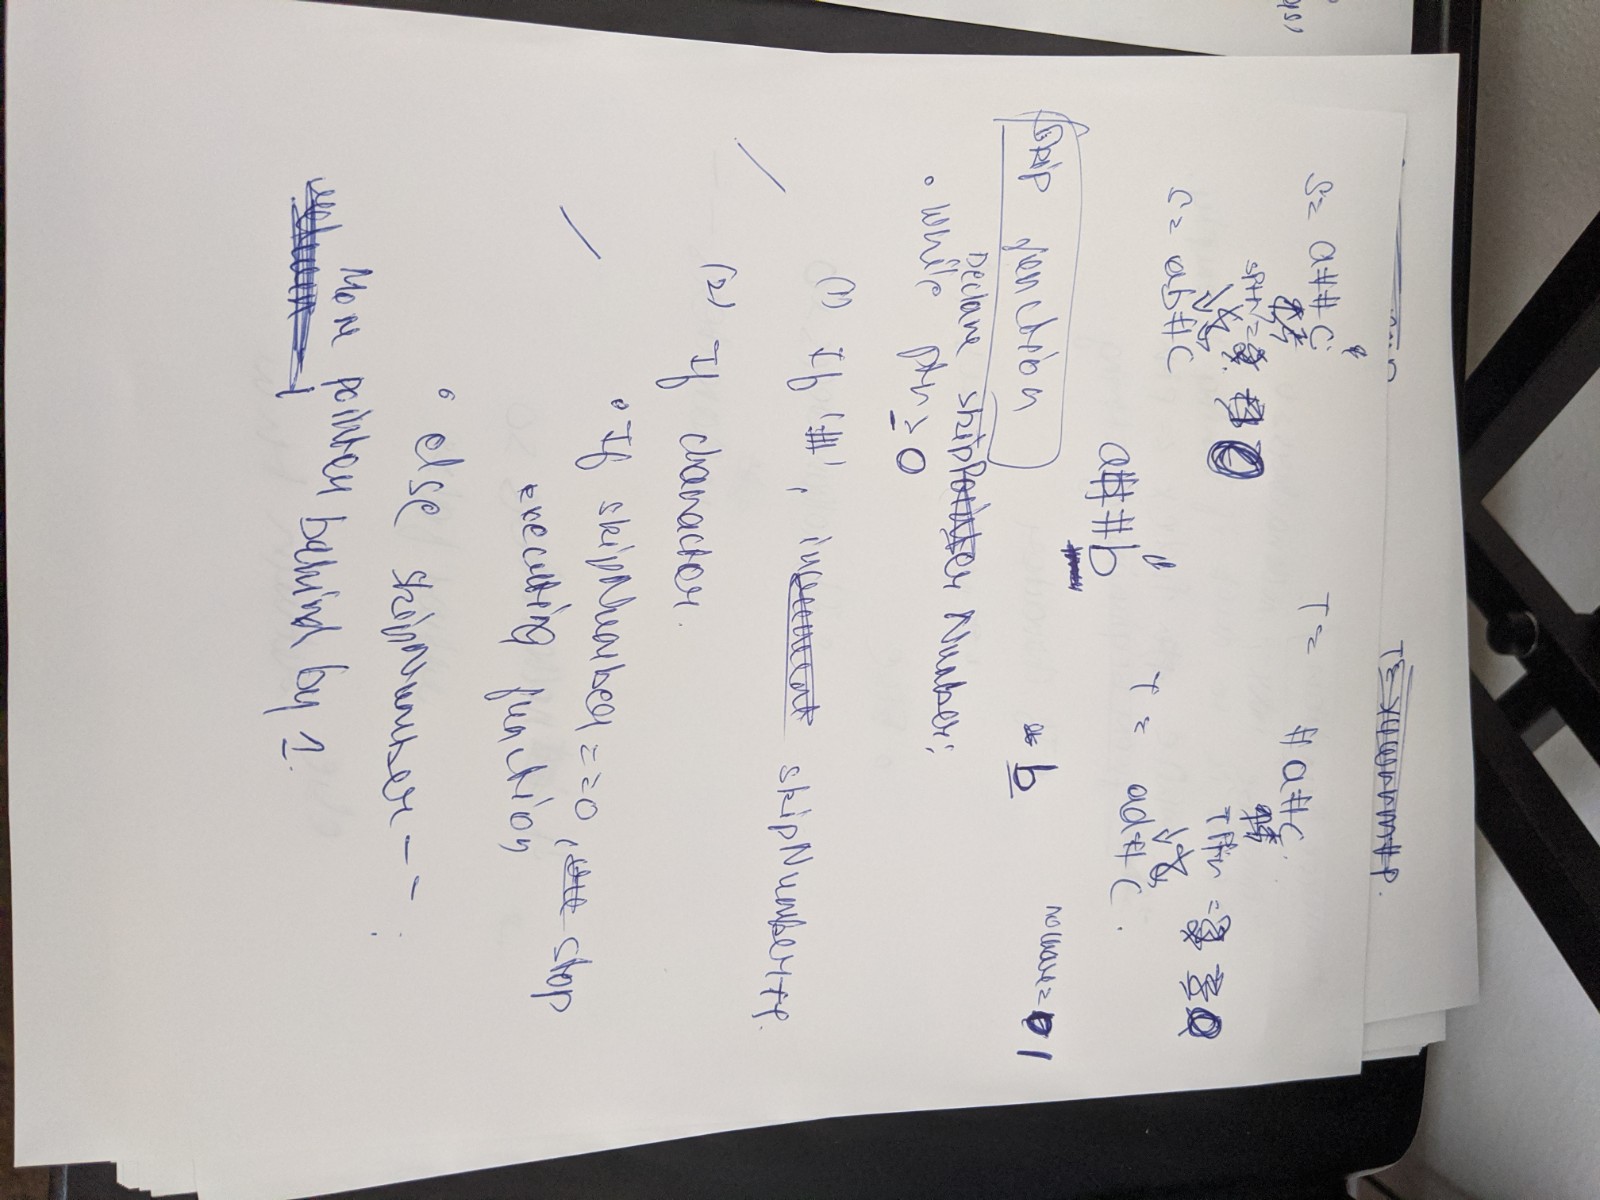 S= a##c
T= #a#c
S= ab#c
T= ad#c.
a##b
b
Skip function
Declare skip Number;
• while ptr ≥ 0
(1) If '#', skipNumber++.
(2) If character.
• If skipNumber ==0, stop
executing function
• else skipNumber--;
Move pointer behind by 1.